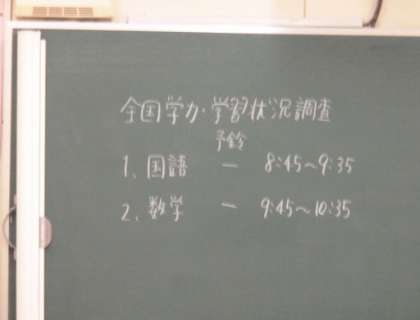 全国学力・学習状況調査
予鈴
1、国語 － 8:45～9:35
2、数学 － 9:45～10:35